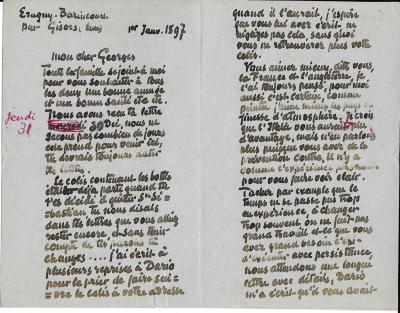 Eragny-Bazincourt
Par Gisors, (Eure)
1er Janv. 1897
mon cher Georges
Toute la famille se joint à moi
pour vous souhaiter à tous
les deux une bonne année
et une bonne santé etc.
Nous avons reçu ta lettre
30 Déc, nous ne
Jeudi
31
savons pas combien de jours
cela prend pour venir ici,
tu devrais toujours
ta lettre.
Le colis contenant les bottes
était déjà parti quand tu
t'es décidé à quitter St Sé-
bastian tu nous disais
dans tes lettres que vous alliez
rester encore et sans tenir
compte de tu
changes .... j'ai écrit à
plusieurs reprises à Dario
pour le prier de faire sui-
vre le colis à votre adresse
quand il l'aurait, j'espère
que vous lui avez écrit
négligez pas cela, sans quoi
vous ne retrouverez plus votre
colis.
Vous aimez mieux, dites vous,
la France et l'Angleterre, je
l'ai toujours pensé, pour moi
aussi c'est certain, comme
peintre, j'aime mieux les pays à
finesse d'atmosphère, je crois
que l'Italie vous aurait plu
d'avantage, mais n'en parlons
plus puisque vous avez de la
prévention contre, il n'y a
comme l'expérience personnelle
pour vous faire voir clair.
Tachez par exemple que le
temps ne se passe pas trop
en expérience, à changer
trop souvent on ne fait pas
grand travail et ce que vous
avez grand besoin c'est
avec persistance,
nous attendons une longue
lettre avec détails, Dario
m'a écrit qu'il vous avait